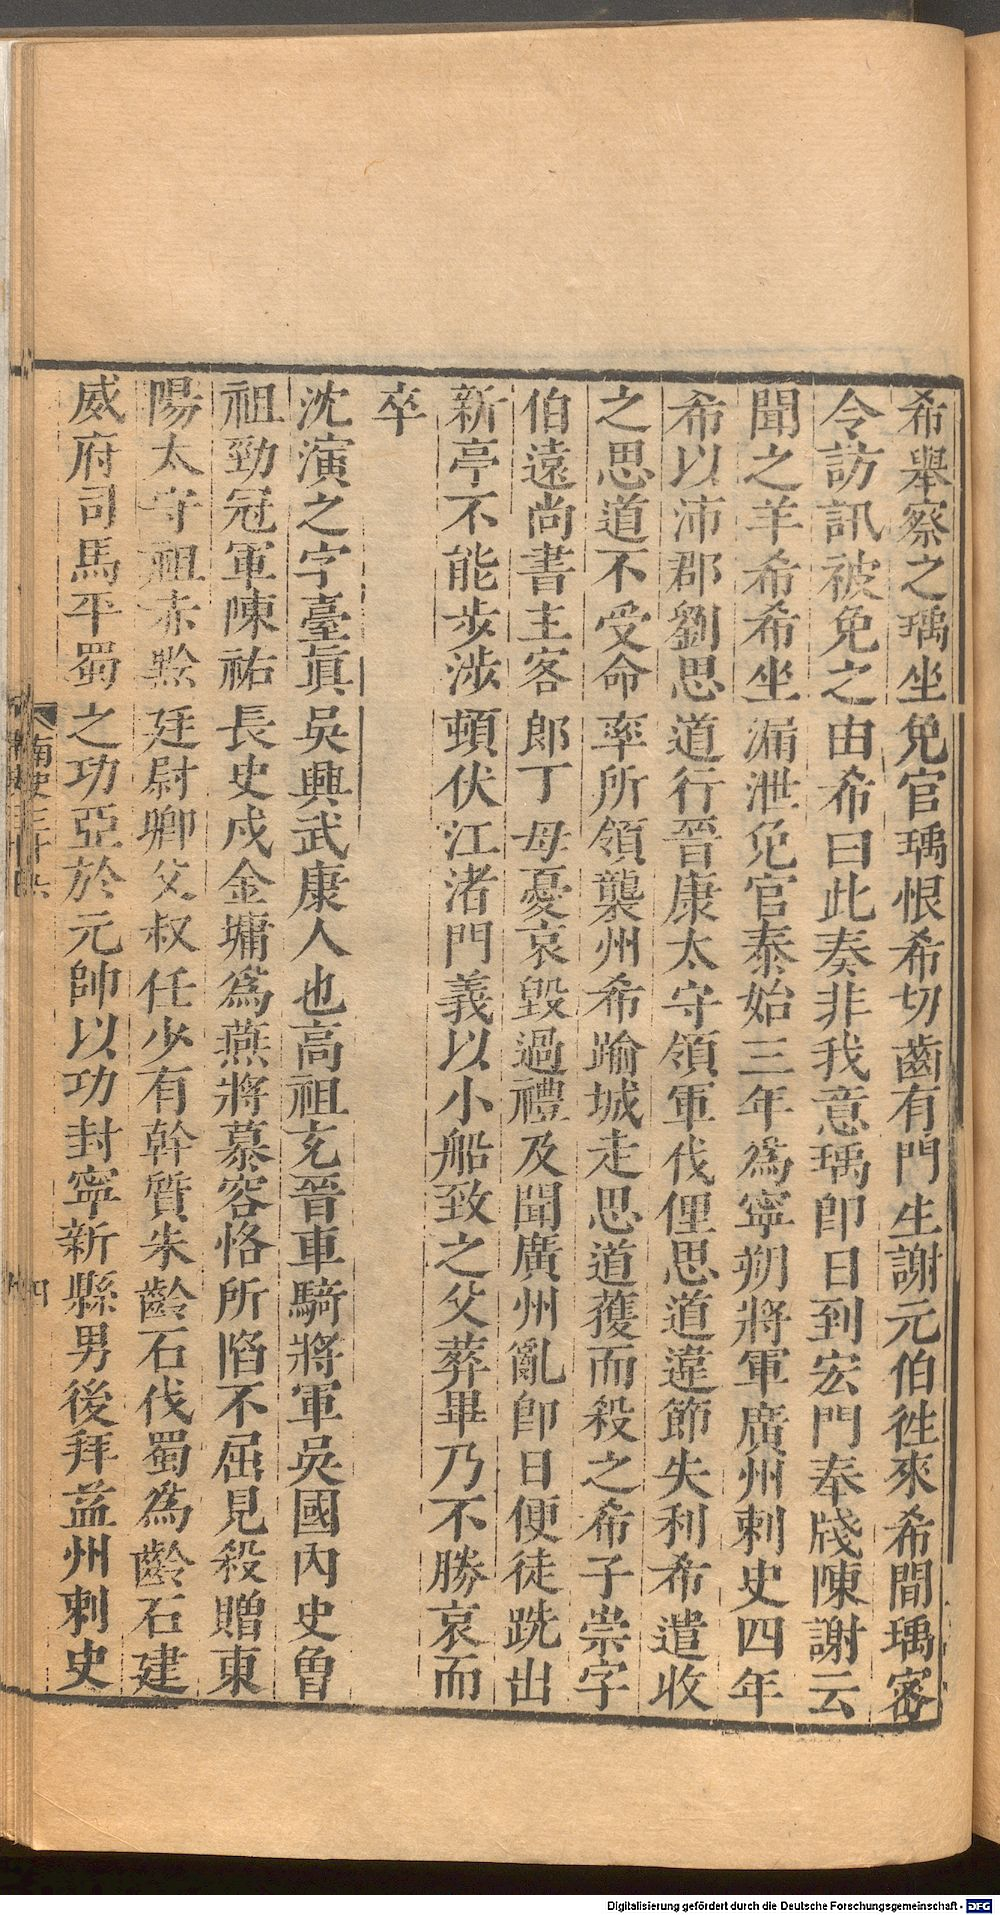 希舉察之瑀坐免官瑀恨希切齒有門生謝元伯徃來希間瑀密
令訪訊被免之由希曰此奏非我意瑀卽日到宏門奉牋陳謝云
聞之羊希希坐漏泄免官泰始三年爲寧朔將軍廣州刺史四年
希以沛郡劉思道行晉康太守領軍伐俚思道違節失利希遣收
之思道不受命率所領襲州希踰城走思道獲而殺之希子崇字
伯遠尚書主客郎丁母憂哀毀過禮及聞廣州亂卽日便徒跣出
新亭不能步涉頓伏江渚門義以小船致之父葬畢乃不勝哀而
卒
沈演之字臺眞吳興武康人也高祖充晉車騎將軍吳國內史曾
祖勁冠軍陳祐長史戍金墉爲燕將慕容恪所陷不屈見殺贈東
陽太守祖赤黔廷尉卿父叔任少有幹質朱齡石伐蜀爲齡石建
威府司馬平蜀之功亞於元帥以功封寧新縣男後拜益州刺史
南史三十六
四
Digitalisierung gefördert durch die Deutsche Forschungsgemeinschaft - DFG